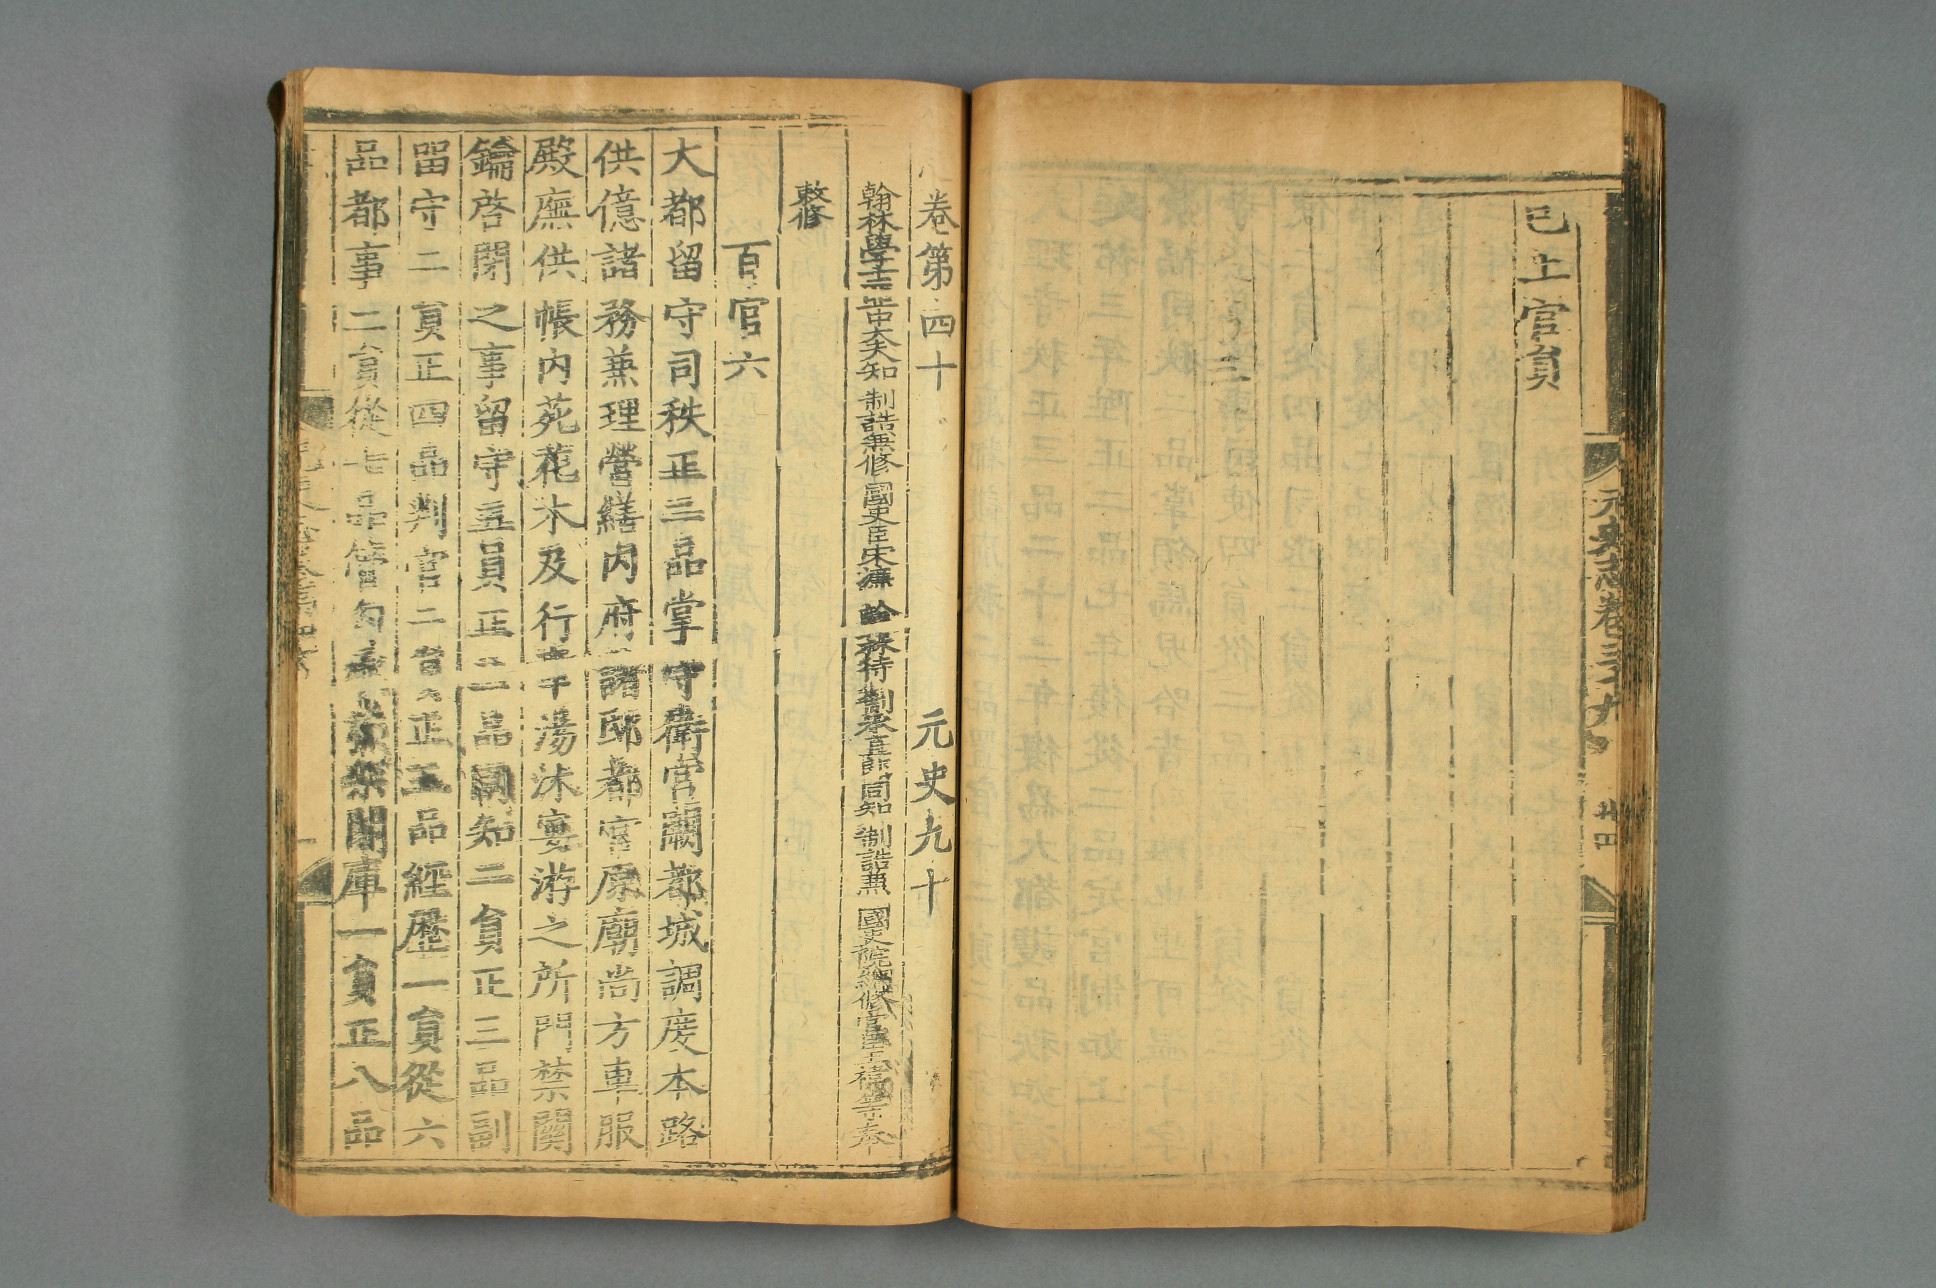 已上官員
元史志卷三十九
廿四
卷第四十 元史九十
翰林學士亞中大夫知制誥兼修國史臣宋濂翰林待制承直郎同知制誥兼國史院編修官臣王禕等奉
敕修
百官六
大都留守司秩正二品掌守衛宮闕都城調度本路
供億諸務兼理營繕內府諸邸都宮原廟尚方車服
殿廡供帳內苑花木及行幸湯沐宴游之所門禁關
鑰啓閉之事留守五員正二品同知二員正三品副
留守二員正四品判官二員正五品經歷一員從六
品都事二員從七品管勾承發架閣庫一員正八品